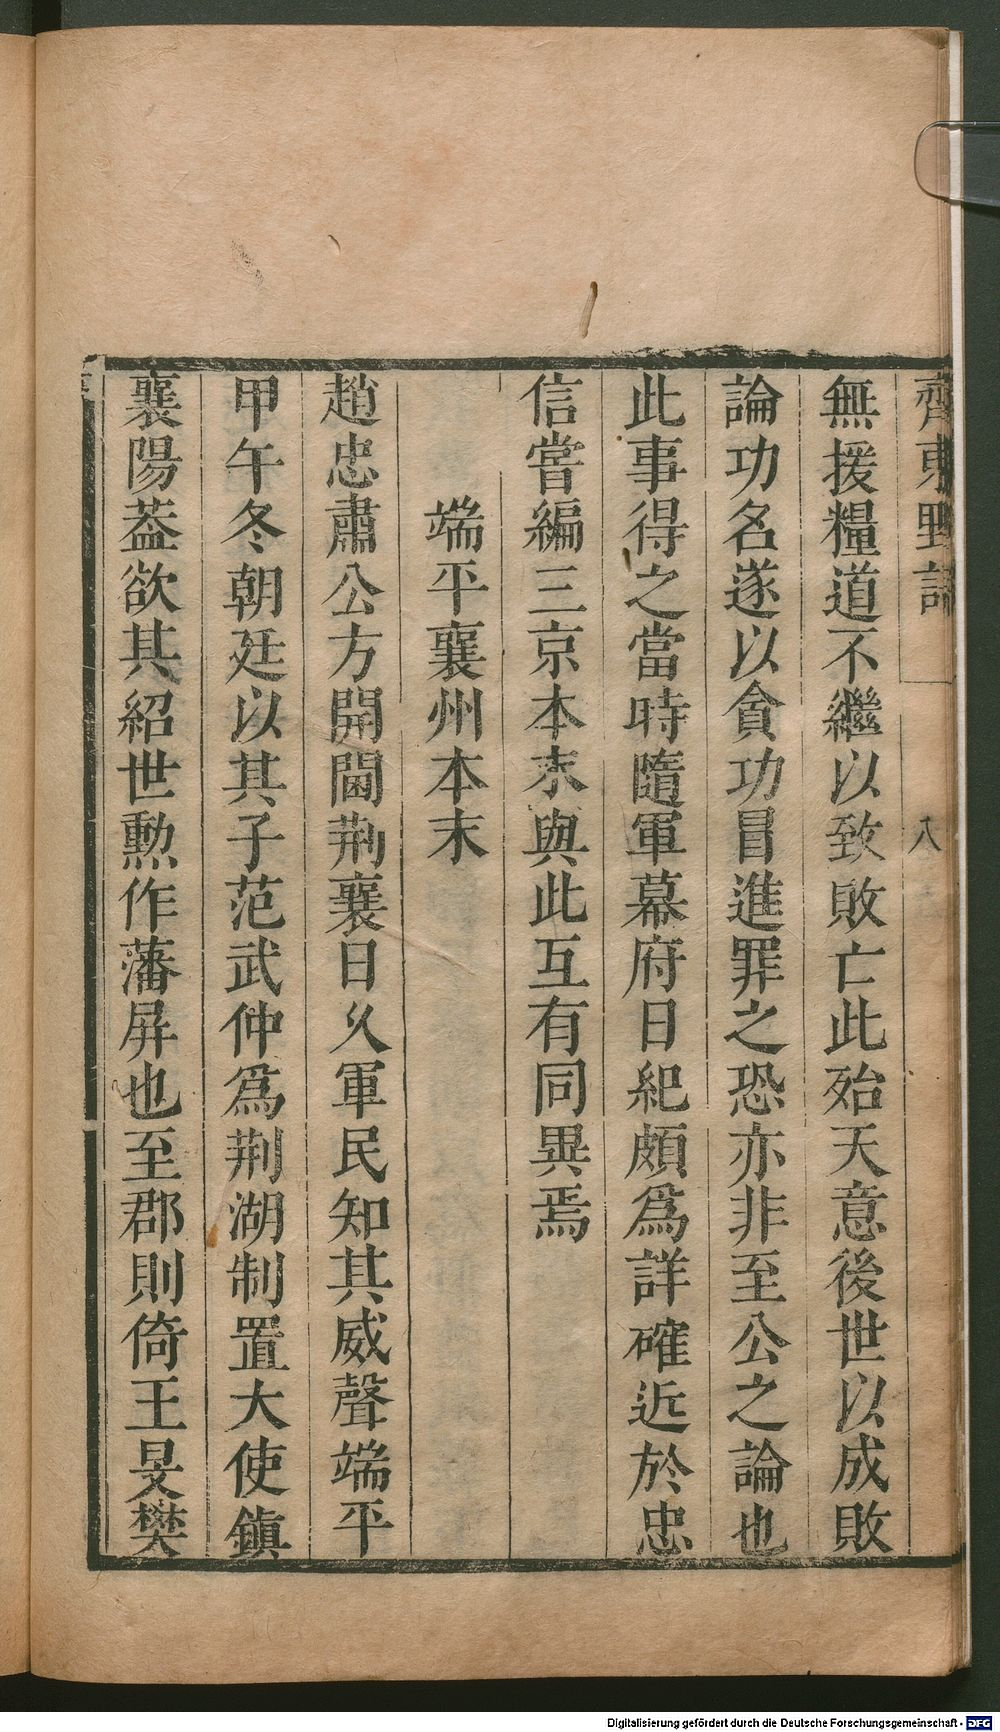 齊東野語
八
無援糧道不繼以致敗亡此殆天意後世以成敗
論功名遂以貪功冒進罪之恐亦非至公之論也
此事得之當時隨軍幕府日紀頗爲詳確近於忠
信嘗編三京本末與此互有同異焉
端平襄州本末
趙忠肅公方開閫荆襄日久軍民知其威聲端平
甲午冬朝廷以其子范武仲爲荆湖制置大使鎮
襄陽葢欲其紹世勲作藩屏也至郡則倚王旻樊
Digitalisierung gefördert durch die Deutsche Forschungsgemeinschaft - DFG